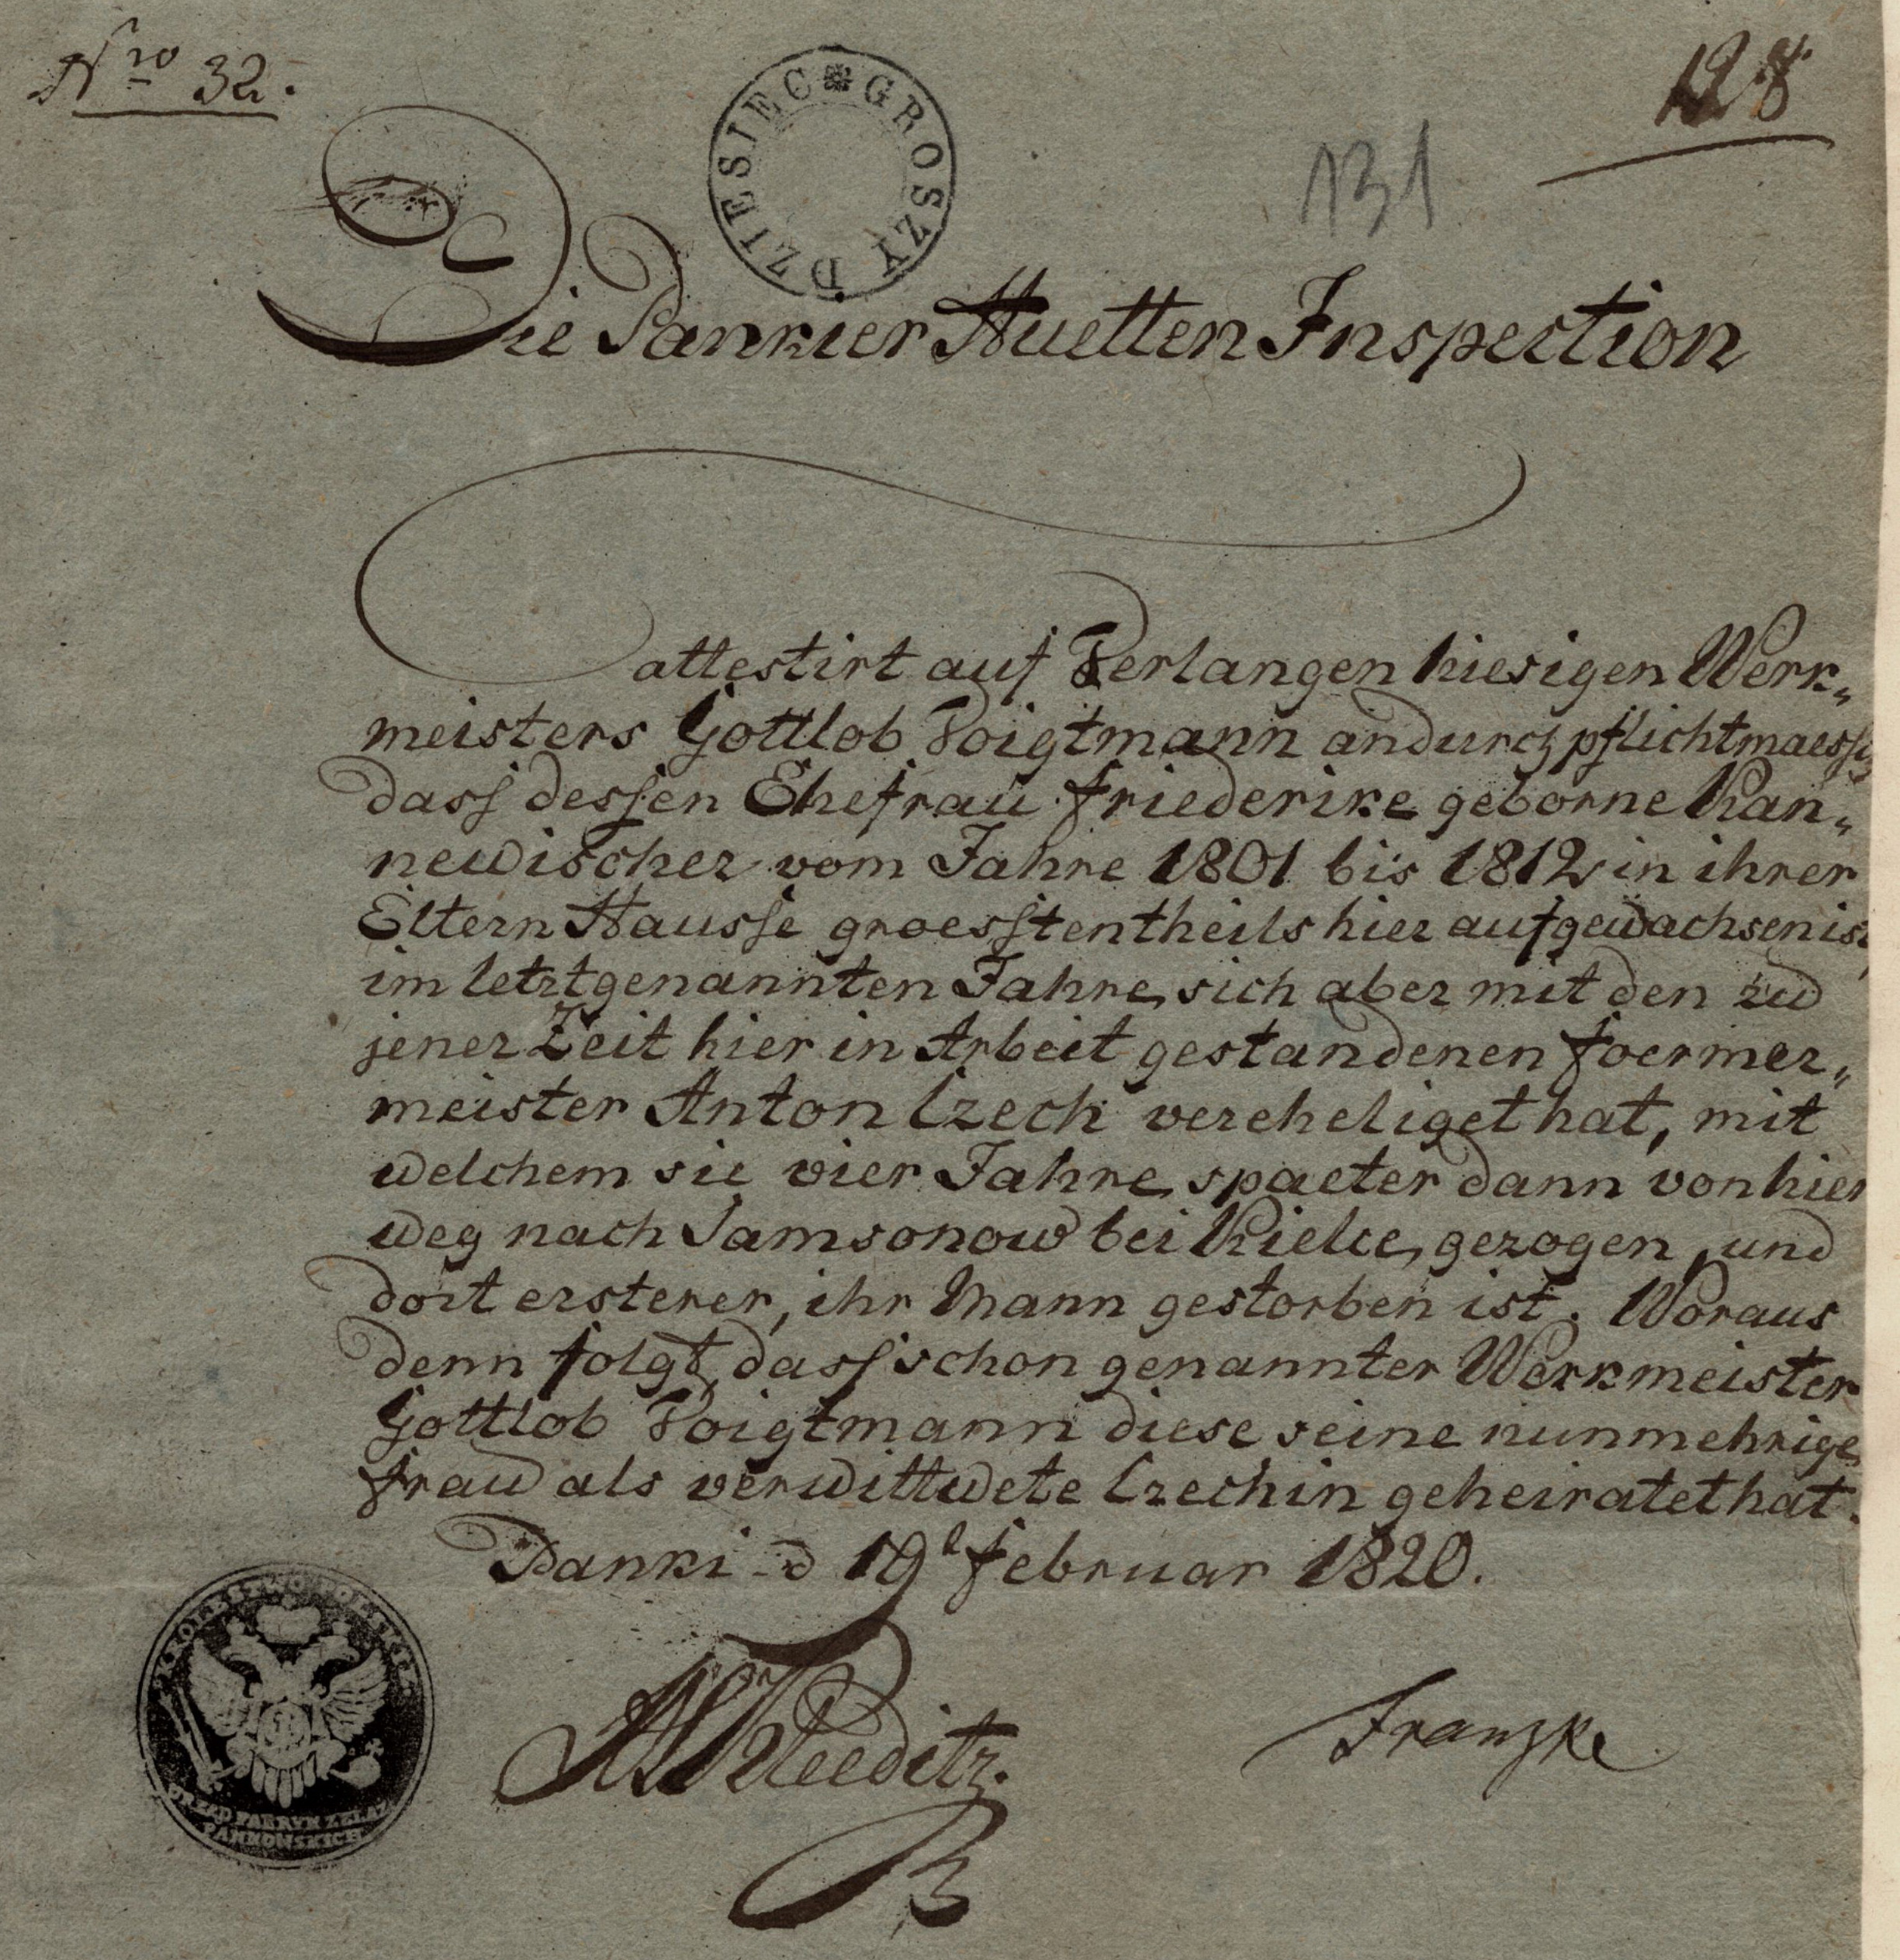 Nro 32.
128
131
DZIESIEC GROSZY
Die Pankier Huetten Inspection
attestirt auf Verlangen hiesigen Werk„
meisters Gottlob Voigtmann andurch pflichtmaessig
dass dessen Ehefrau Friederike geborne Kan„
newischer vom Jahre 1801 bis 1812 in ihrer
Eltern Hausse groesstentheils hier aufgewachsen ist,
im letztgenannten Jahre sich aber mit den zu
jener Zeit hier in Arbeit gestandenen Foermer„
meister Anton Czech vereheliget hat, mit
welchem sie vier Jahre spaeter dann von hier
weg nach Samsonow bei Kielce gezogen, und
dort ersterer, ihr Mann gestorben ist. Woraus
denn folgt, dass schon genannter Werkmeister
Gottlob Voigtmann diese seine nunmehrige
Frau als verwittwete Czechin geheiratet hat.
Panki d 19t Februar 1820.
Franzke
KROLESTWO POLSKIE
URZĄD FABRYK ZELAZ
PANKOWSKICH